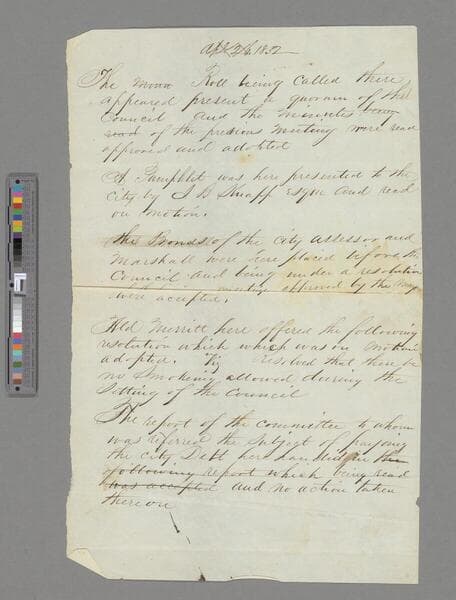 1852
The Roll being called there
appeared present a quorum of the
Council and the minutes being
read of the previous meeting were read
approved and adopted
A Pamphlet was here presented to the
City by J B Knapp Esqr and read
on motion.
the Bonds of the City Assessor and
Marshall were here placed before the
Council and being under a resolution
approved by the
were accepted.
Ald Merritt here offered the following
resolution which which was on motion
adopted. Viz resolved that there be
no smokeing allowed during the
sitting of the Council
The report of the committee to whom
was referred the subject of paying
the City Debt here handed in the
following report which being read
was accepted and no action taken
thereon